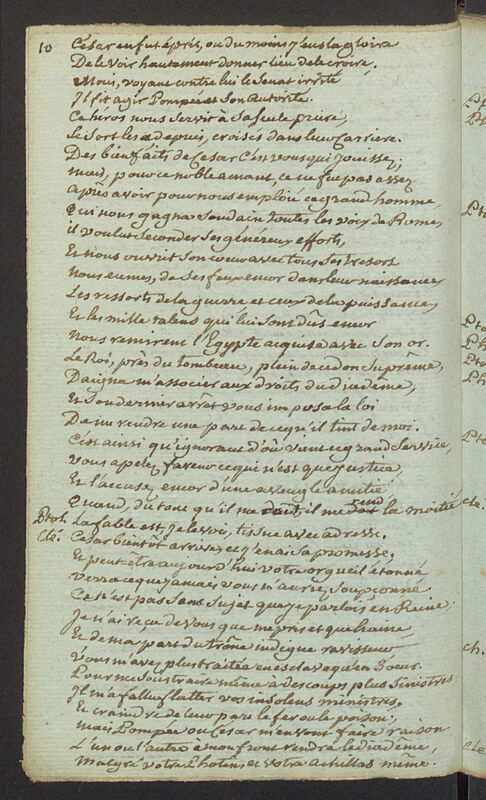 10 César en fut épris, ou du moins j'eus la gloire
De le voir hautement donner lieu de le croire.
Mais, voyant contre lui le Senat irrité
Il fit agir Pompée et Son autorité.
Ce héros nous Servit à Sa seule priere,
Le Sort les a depuis, croisés dans leur Carriere.
Des bienfaits de Cesar C'est vous qui jouissez;
mais, pour ce noble amant, ce ne fut pas assez.
après avoir pour nous emploié ce grand homme,
Qui nous gagna Soudain toutes les voix de Rome,
il voulut seconder Ses généreux efforts,
Et nous ouvrit Son coeur avec tous Ses tresors
Nous eumes, de Ses feux encor dans leur naissance
Les ressorts de la guerre et ceux de la puissance,
Et les mille talens qui lui Sont dûs encor
Nous remirent l'Egypte acquise avec Son or.
Le Roi, près du tombeau, plein de ce don Suprême,
Daigna m'associer aux droits du diadême,
Et Son dernier arrêt vous imposa la loi
De me rendre une part de ce qu'il tint de moi.
C'est ainsi qu'ignorant d'où vient ce grand Service,
Vous apelez faveur ce qui n'est que justice,
Et l'accusez encor d'une aveugle amitié
Quand, du tout qu'il me doit, il me rend la moitié
Ptol. La fable est, je le voi, tissue avec adresse.
Clé. Cesar bientôt arrive, et j'en ai sa promesse.
Et peut-être aujourd'hui votre orgueil étonné
Verra ce que jamais vous n'auriez soupçonné.
Ce n'est pas Sans Sujet que je parlois en Reine
Je n'ai reçu de vous que mepris et que haine
Et de ma part du trône indigne ravisseur
Vous m'avez plus traitée en esclave qu'en Soeur.
Pour me Soustraire même à des coups plus Sinistres
Il m'a fallu flatter vos insolens ministres.
Et craindre de leur part le fer ou le poison;
mais Pompée ou Cesar m'en vont faire raison
L'un ou l'autre à mon front rendra le diadême,
Malgré votre Photin, et votre achillas même.